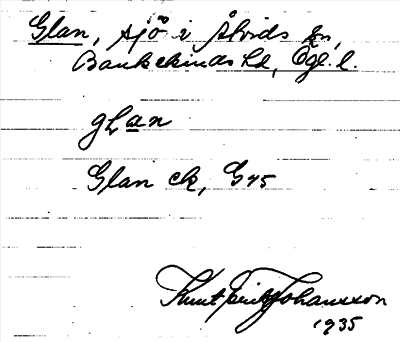 Glan, sjö i Åtvids sn,
Bankekinds hd, Ögl. l.
gLan
Glan ek, G45
Knut Erik Johansson
1935